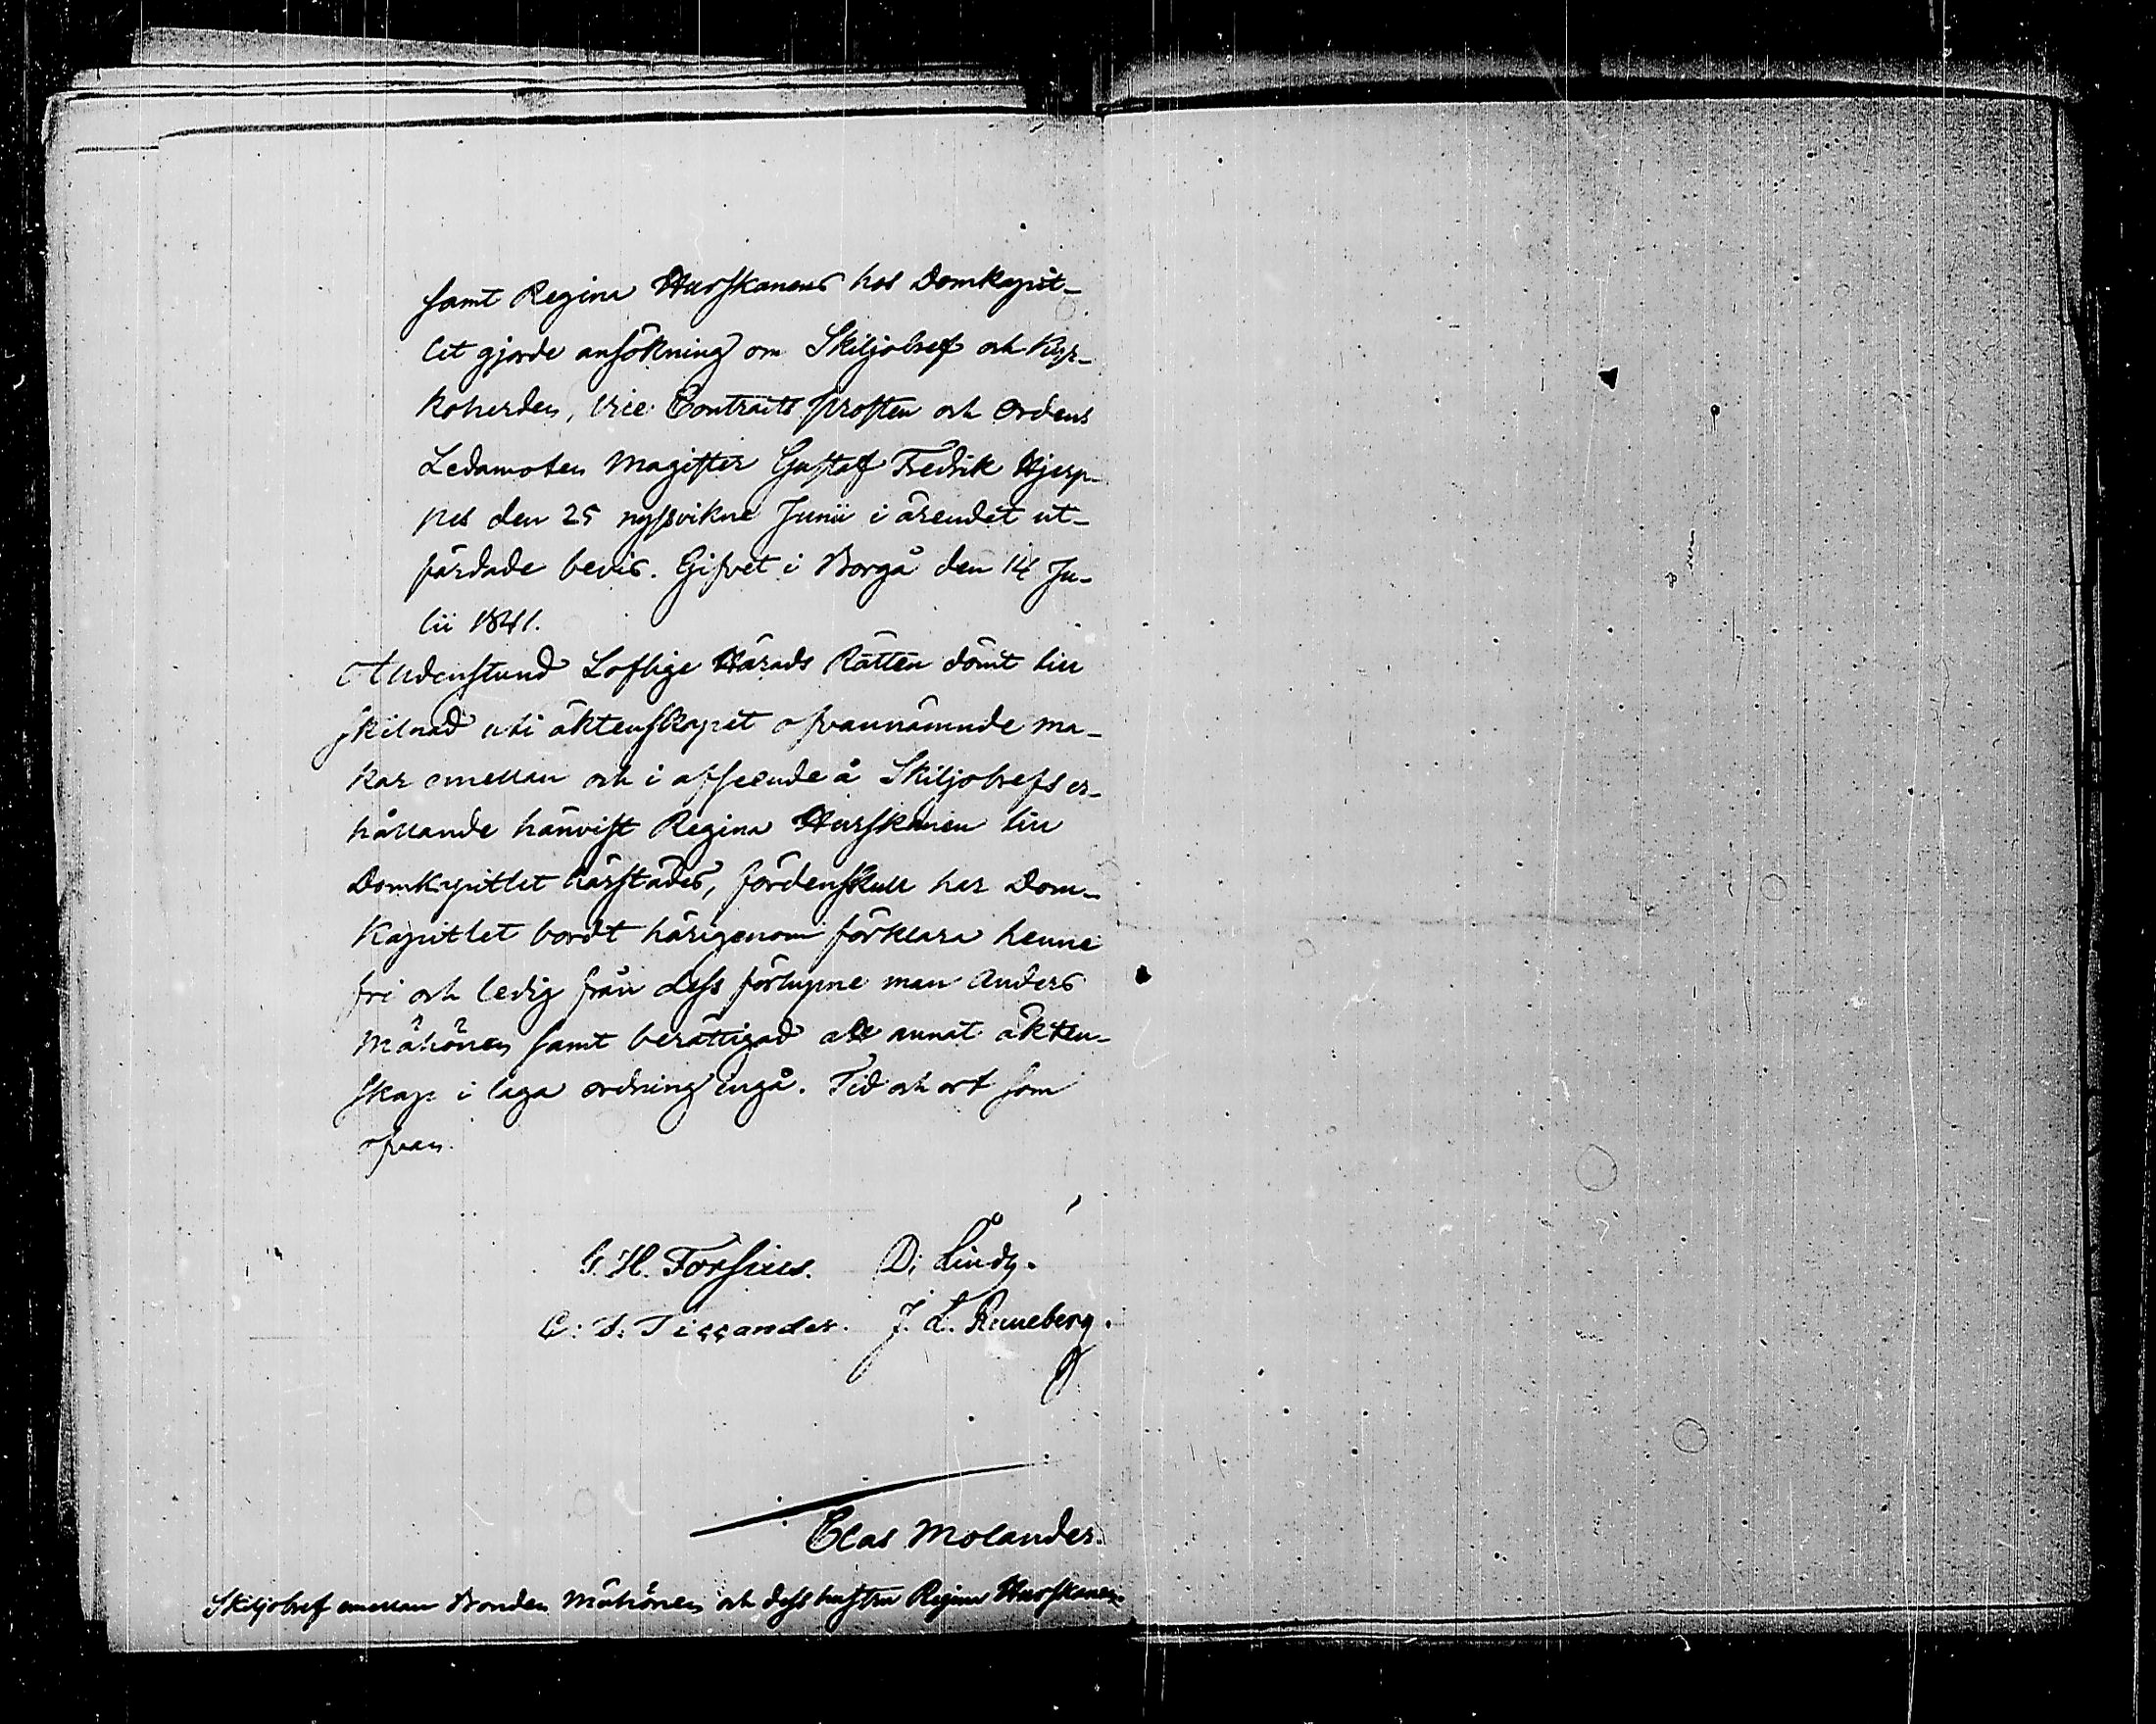 samt Regina Hurskanens hos Domkapit-
let gjorde ansökning om Skiljobref och Kyr-
koherden, Vice Contracts Prosten och Ordens
Ledamoten Magister Gustaf Fredrik Hjerp-
pes den 25 nyssvikne Junii i ärendet ut-
färdade bevis. Gifvet i Borgå den 14 Ju-
lii 1841.
Aldenstund Lofliga Härads Rätten dömt till
skilnad uti äktenskapet ofvannämnde ma-
kar emellan och i afseende å Skiljobrefs er-
hållande hänvist Regina Hurskanen till
Domkapitlet härstädes, fördenskull har Dom-
Kapitlet bordt härigenom förklara henne
fri och ledig från dess förlupne man Anders
Mähönen samt berättigad att annat äkten-
skap i laga ordning ingå. Tid och ort som
ofvan.
G. H. Forsius. D. Lindh.
C. S. Tiggander. J. L. Runeberg.
Clas Molander.
Skiljobref emellan Bonden Mähönen och dess hustru Regina Hurskanen.